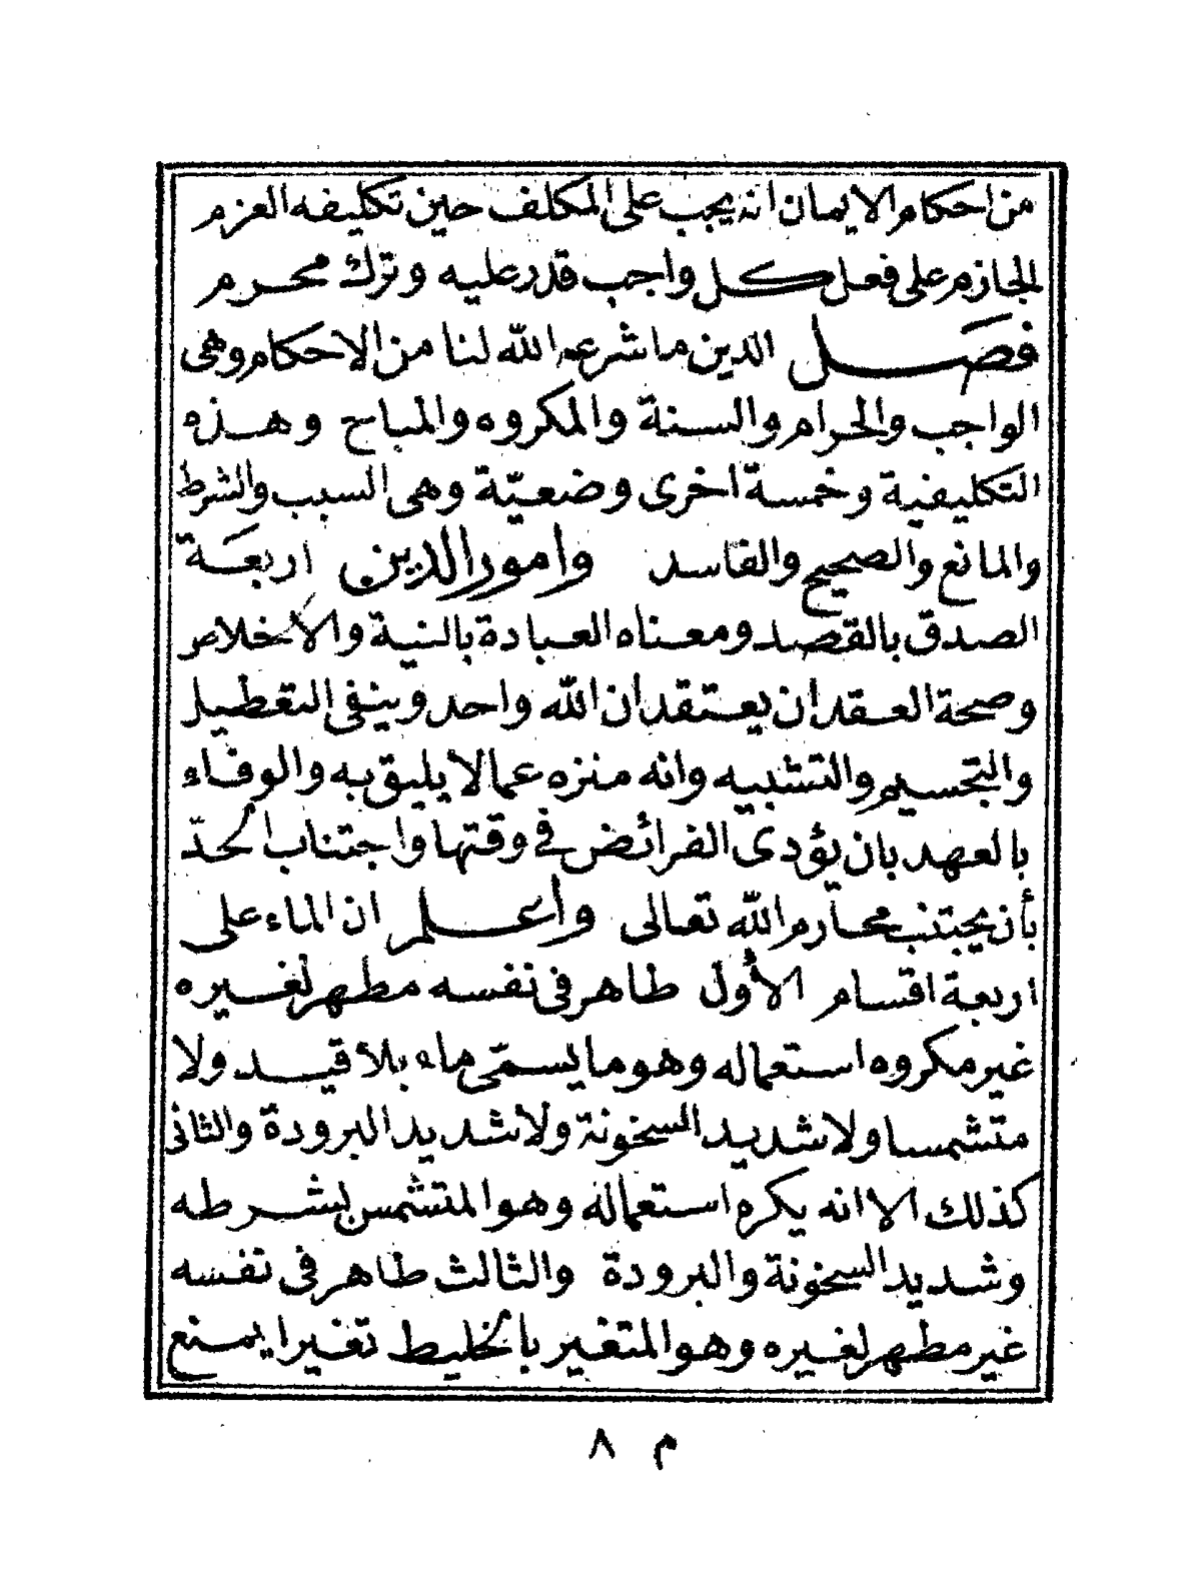 من احكام الايمان انه يجب على المكلف حين تكليفه العزم
الجازم على فعل كل واجب قدر عليه وترك محرم
فصل الدين ما شرعه الله لنا من الاحكام وهى
الواجب والحرام والسنة والمكروه والمباح وهذه
التكليفية وخمسة اخرى وضعيّة وهى السبب والشرط
والمانع والصحيح والفاسد وامور الدين اربعة
الصدق بالقصد ومعناه العبادة بالنية والاخلاص
وصحة العقد ان يعتقد ان الله واحد وينفى التعطيل
والتجسيم والتشبيه وانه منزه عما لا يليق به والوفاء
بالعهد بان يؤدى الفرائض في وقتها واجتناب الحدّ
بأن يجتنب محارم الله تعالى وأعلم ان الماء على
اربعة اقسام الأول طاهر فى نفسه مطهر لغيره
غير مكروه استعماله وهو ما يسمّى ماء بلا قيد ولا
متشمسا ولا شديد السخونة ولا شديد البرودة والثانى
كذلك الا انه يكره استعماله وهو المتشمس بشرطه
وشديد السخونة والبرودة والثالث طاهر فى نفسه
غير مطهر لغيره وهو المتغير بالخليط تغيرا يمنع
م ٨